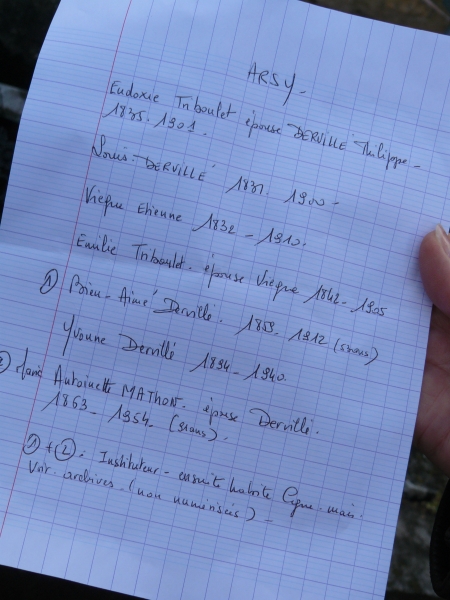 ARSY -
Eudoxie Triboulet épouse DERVILLÉ Philippe -
1835. 1901.
Louis DERVILLÉ 1831. 1900 -
Vièque Etienne 1832 - 1910.
Emilie Triboulet. épouse Vièque 1842 - 1905
① Bien-Aimé Dervillé. 1859 - 1912 (53ans)
Yvonne Dervillé 1894 - 1940.
② Marie Antoinette MATHON. épouse Dervillé.
1863 - 1954 - (91ans).
① + ②. Instituteur - ensuite habite mais
Voir archives - (non numérisées) -